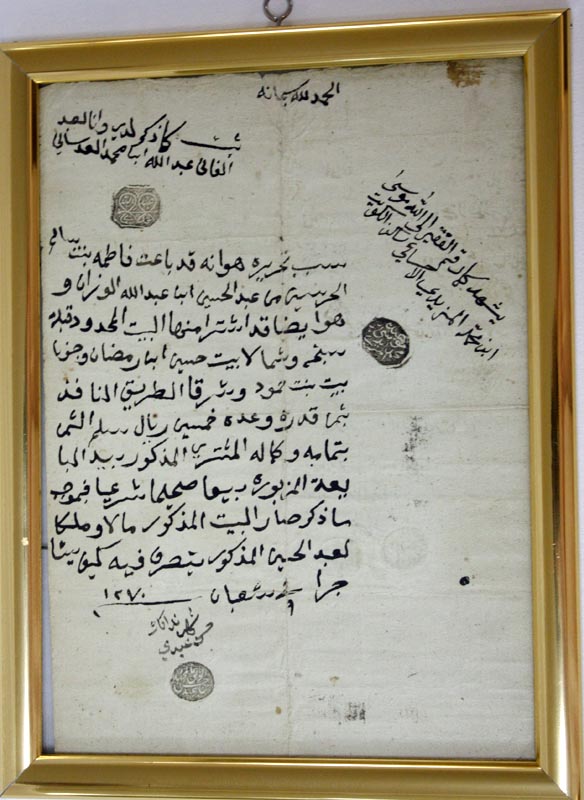 الحمد لله سبحانه
ثبت كما ذكر لدي وانا العبد
الفاني عبد الله ابن محمد العدساني
يشهد بما رقم الفقير الى الله موسى
ابن محمد المزيدي الاحسائي ساكن الكويت
سبب تحريره هو انه قد باعت فاطمه بنت صالح
من عبد الحسين ابن عبد الله الوزان و
هو ايضا قد اشترا منها البيت المحدود قبلة
وشمالا بيت حسين ابن رمضان وجنوبا
بيت بنت حمود وشرقا الطريق النافذ
بثمن قدره وعدده خمسين ريال الثمن
بتمامه وكماله المشتري المذكور بيد البا
يعة المزبوره بيعا صحيحا شرعيا فبموجب
ما ذكر صار البيت المذكور مالا وملكا
لعبد الحسين المذكور يتصرف فيه كيف يشا
جرا في شعبان ١٢٧٠